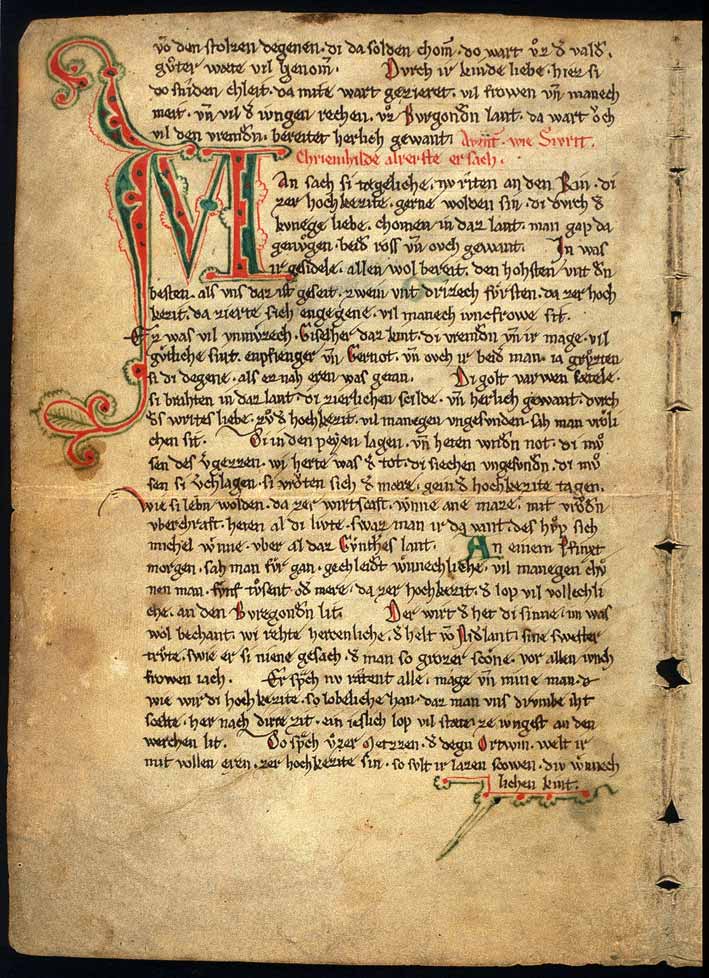 vō den stolzen degenen. di da solden chom̄. do wart vz̄ d̄ vald.
gůter wæte vil ḡenom̄. Durch ir kinde liebe. hiez si
do sniden chleit. da mite wart gezieret. vil frowen vn̄ manech
meit. vn̄ vil d̄ iungen rechen. vz̄ Burgondn̄ lant. da wart ŏch
vil den vremdn̄. bereitet herlich gewant. Avent. wie Sivrit.
Chriemhilde alreste ersach.
Man sach si tægeliche. nv riten an den Rin. di
zer hochkezite. gerne wolden sin. di dvrch d̄
kvnege liebe. chomen in daz lant. man gap da
genvgen. beid ross vn̄ ovch gewant. In was
ir gesidele. allen wol bereit. den hohsten vnt dn̄
besten. als vns daz ist geseit. zwein vnt drizech fv̊rsten. da zer hoch
kezit. da zierte sich engegene. vil manech ivncfrowe sit.
Ez was vil vnmvzech. Giselher daz kint. di vremdn̄ vn̄ ir mage. vil
gv̊tliche sint. enpfienger vn̄ Gernot. vn̄ ovch ir beid man. ia grv̊zten
si di degene. als ez nah eren was getan. Di golt varwen sætele.
si brahten in daz lant. di zierlichen scilde. vn̄ herlich gewant. dvrch
d̄s wirtes liebe. zv̊ d̄ hochkezit. vil manegen vngesvnden. sah man vrŏli
chen sit. Di in den peŷen lagen. vn̄ heten wndn̄ not. di mv̊
sen des v̄gezzen. wi herte was d̄ tot. di siechen vngesvndn̄. di mv̊
sen si v̄chlagen. si vrŏten sich d̄ mære. gein d̄ hochkezite tagen.
wie si lebn wolden. da zer wirtscaft. wnne ane maze. mit vrŏdn̄
vberchraft. heten al di livte. swaz man ir da vant. des hv̊p sich
michel wnne. vber al daz Gvnthes lant. An einem Pfinxt
morgen. sah man fv̊r gan. gechleidt wnnechliche. vil manegen chv̊
nen man. fvnf tv̊sent od̄ mere. da zer hochkezit. d̄ lop vil vollechli
che. an den Bvregondn̄ lit. Der wirt d̄ het di sinne. im was
wol bechant. wi rehte hercenliche. d̄ helt vō Nidlant. sine swester
trv̊te. swie er si niene gesach. d̄ man so grozer scŏne. vor allen ivnch
frowen iach. Er sp̄ch nv ratent alle. mage vn̄ mine man.
wie wir di hochkezite. so lobeliche han. daz man vns dirvmbe iht
scelte. her nach dirre zit. ein ieslich lop vil stæte. ze ivngest an den
werchen lit. Do sp̄ch vzer Metzzen. d̄ degn Ortwin. welt ir
mit vollen eren. zer hochkezite sin. so svlt ir lazen scowen. div wnnech
lichen kint.